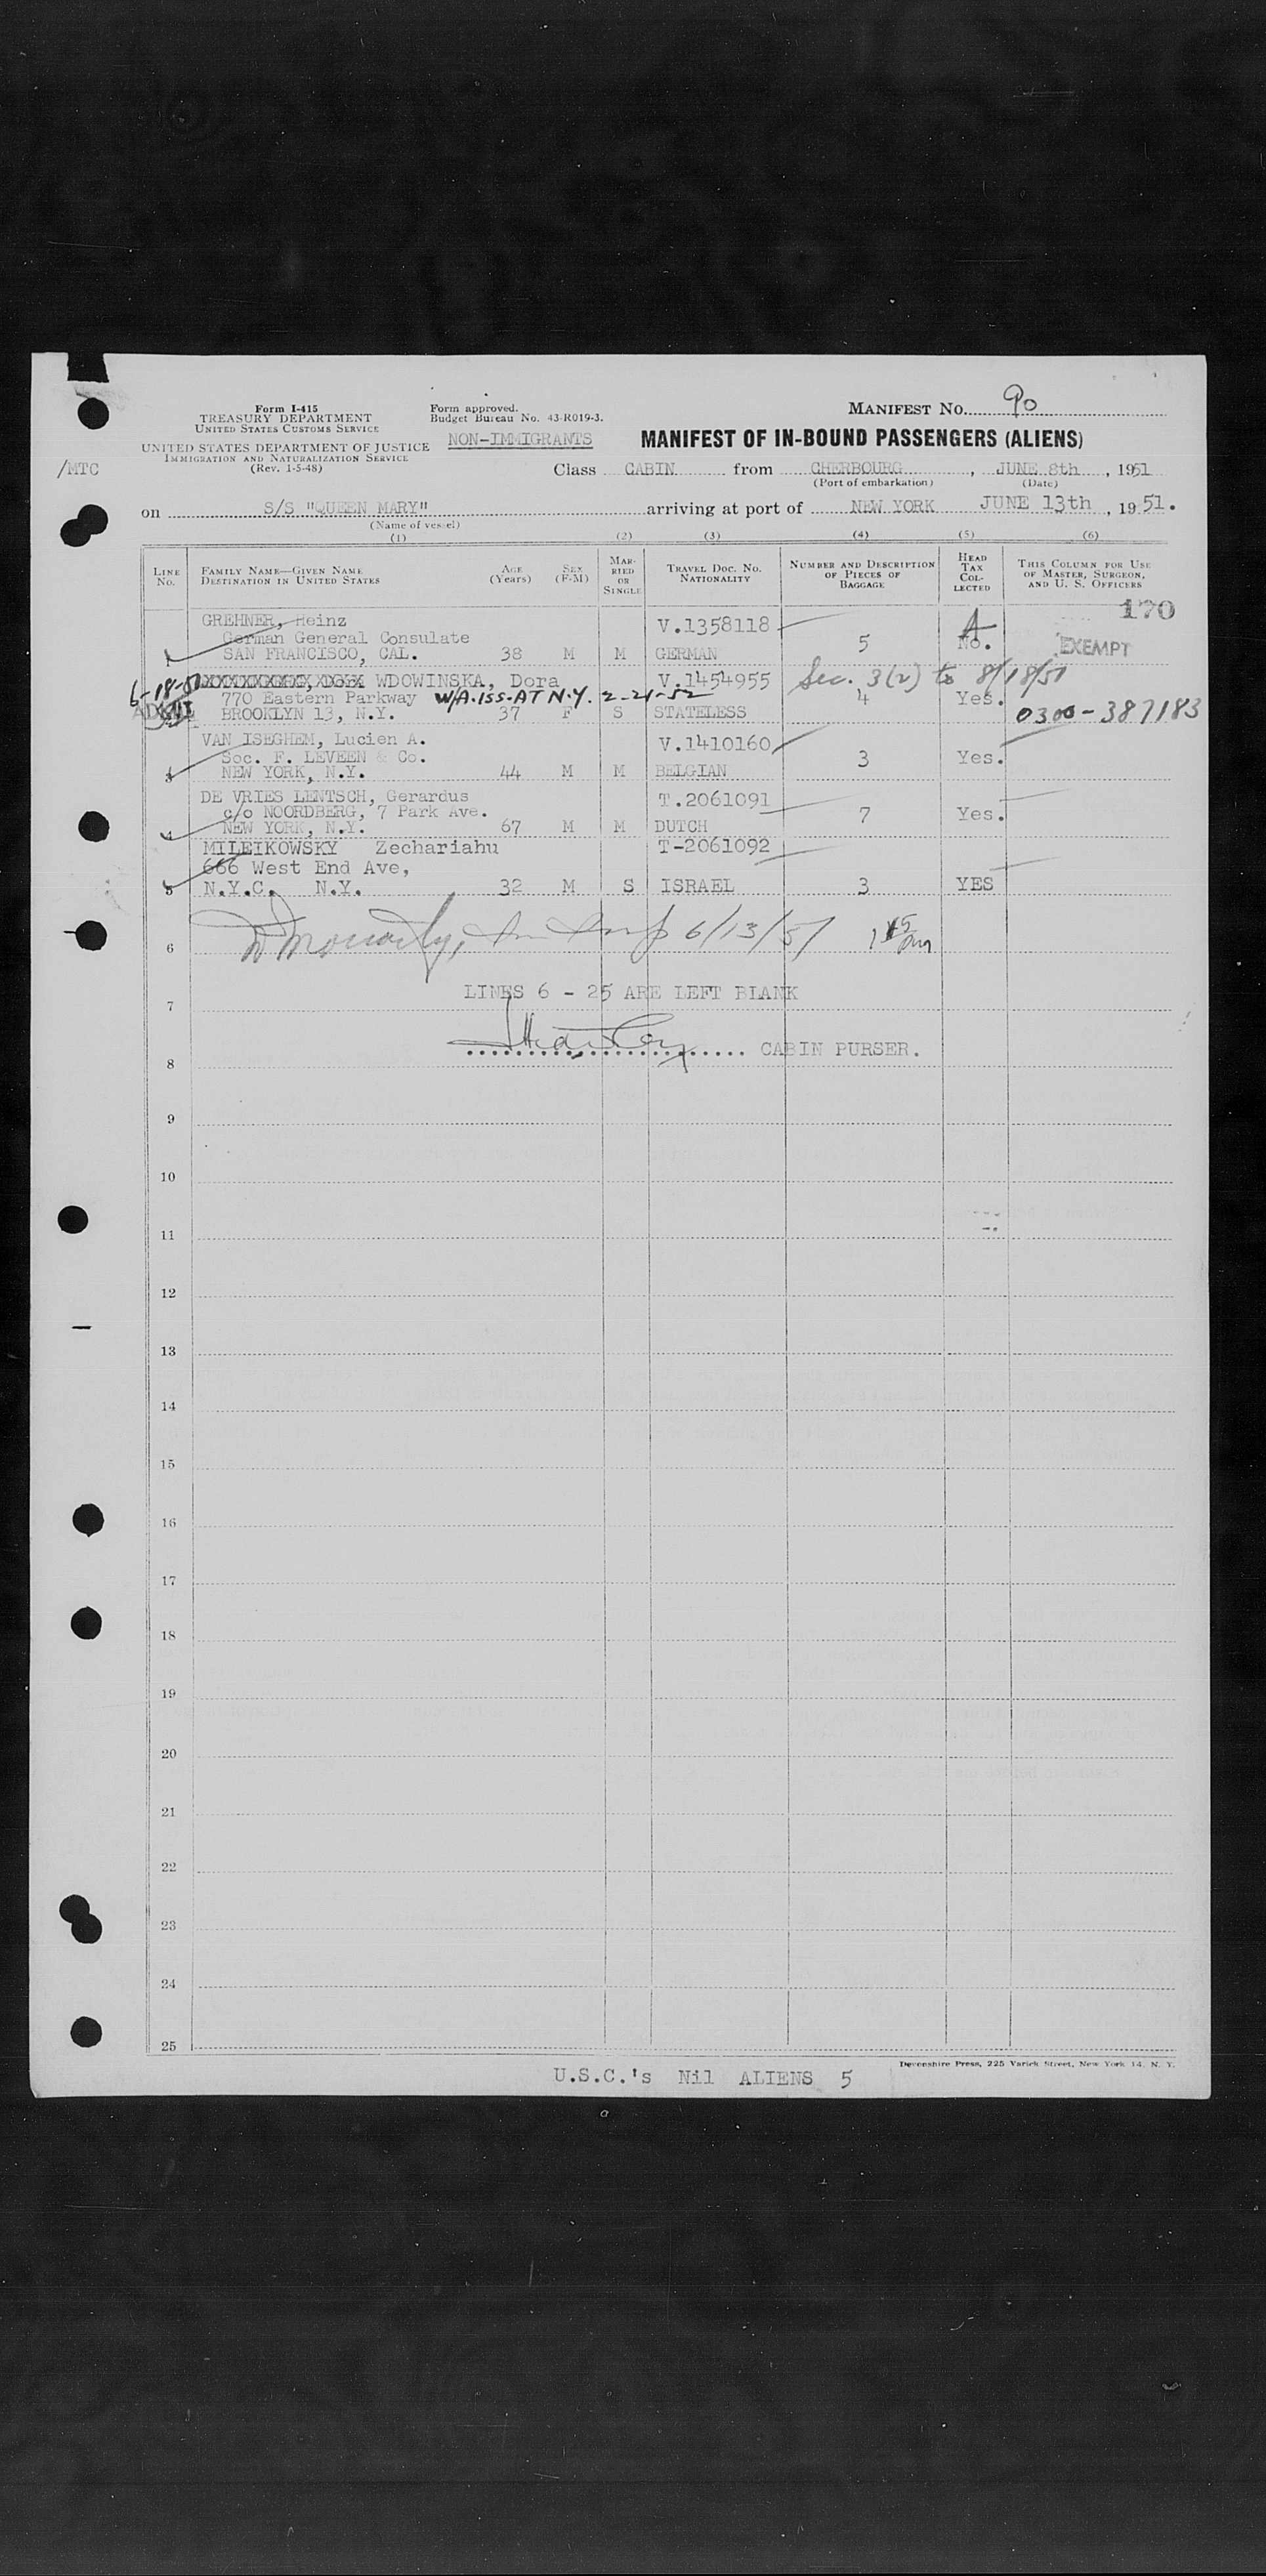 MANIFEST NO. 90
Form I-415
TREASURY DEPARTMENT
UNITED STATES CUSTOMS SERVICE
UNITED STATES DEPARTMENT OF JUSTICE
IMMIGRATION AND NATURALIZATION SERVICE
(Rev. 1-5-48)
Form approved.
Budget Bureau No. 43-R019-3.
NON-IMMIGRANTS
MANIFEST OF IN-BOUND PASSENGERS (ALIENS)
/MTC
Class CABIN from CHERBOURG, JUNE 8th, 1951
(Port of embarkation) (Date)
on S/S "QUEEN MARY" arriving at port of NEW YORK JUNE 13th, 1951.
(Name of vessel)
(1) (2) (3) (4) (5) (6)
LINE No. FAMILY NAME—GIVEN NAME DESTINATION IN UNITED STATES AGE (Years) SEX (F-M) MARRIED OR SINGLE TRAVEL DOC. NO. NATIONALITY NUMBER AND DESCRIPTION OF PIECES OF BAGGAGE HEAD TAX COLLECTED THIS COLUMN FOR USE OF MASTER, SURGEON, AND U. S. OFFICERS
170
GREHNER, Heinz V.1358118 A
German General Consulate 5 No. EXEMPT
1 SAN FRANCISCO, CAL. 38 M M GERMAN
6-18-51 WDOWINSKA, Dora V.1454955 Sec. 3(2) to 8/18/51
770 Eastern Parkway W/A.ISS-AT N.Y. 2-21-52 4 Yes.
BROOKLYN 13, N.Y. 37 F S STATELESS 0300-387183
VAN ISEGHEM, Lucien A. V.1410160
Soc. F. LEVEEN & Co. 3 Yes.
3 NEW YORK, N.Y. 44 M M BELGIAN
DE VRIES LENTSCH, Gerardus T.2061091
c/o NOORDBERG, 7 Park Ave. 7 Yes.
4 NEW YORK, N.Y. 67 M M DUTCH
MILEIKOWSKY Zechariahu T-2061092
666 West End Ave,
5 N.Y.C. N.Y. 32 M S ISRAEL 3 YES
6 6/13/51
LINES 6 - 25 ARE LEFT BLANK
7
CABIN PURSER.
8
9
10
11
12
13
14
15
16
17
18
19
20
21
22
23
24
25
Devonshire Press, 225 Varick Street, New York 14, N. Y.
U.S.C.'s Nil ALIENS 5